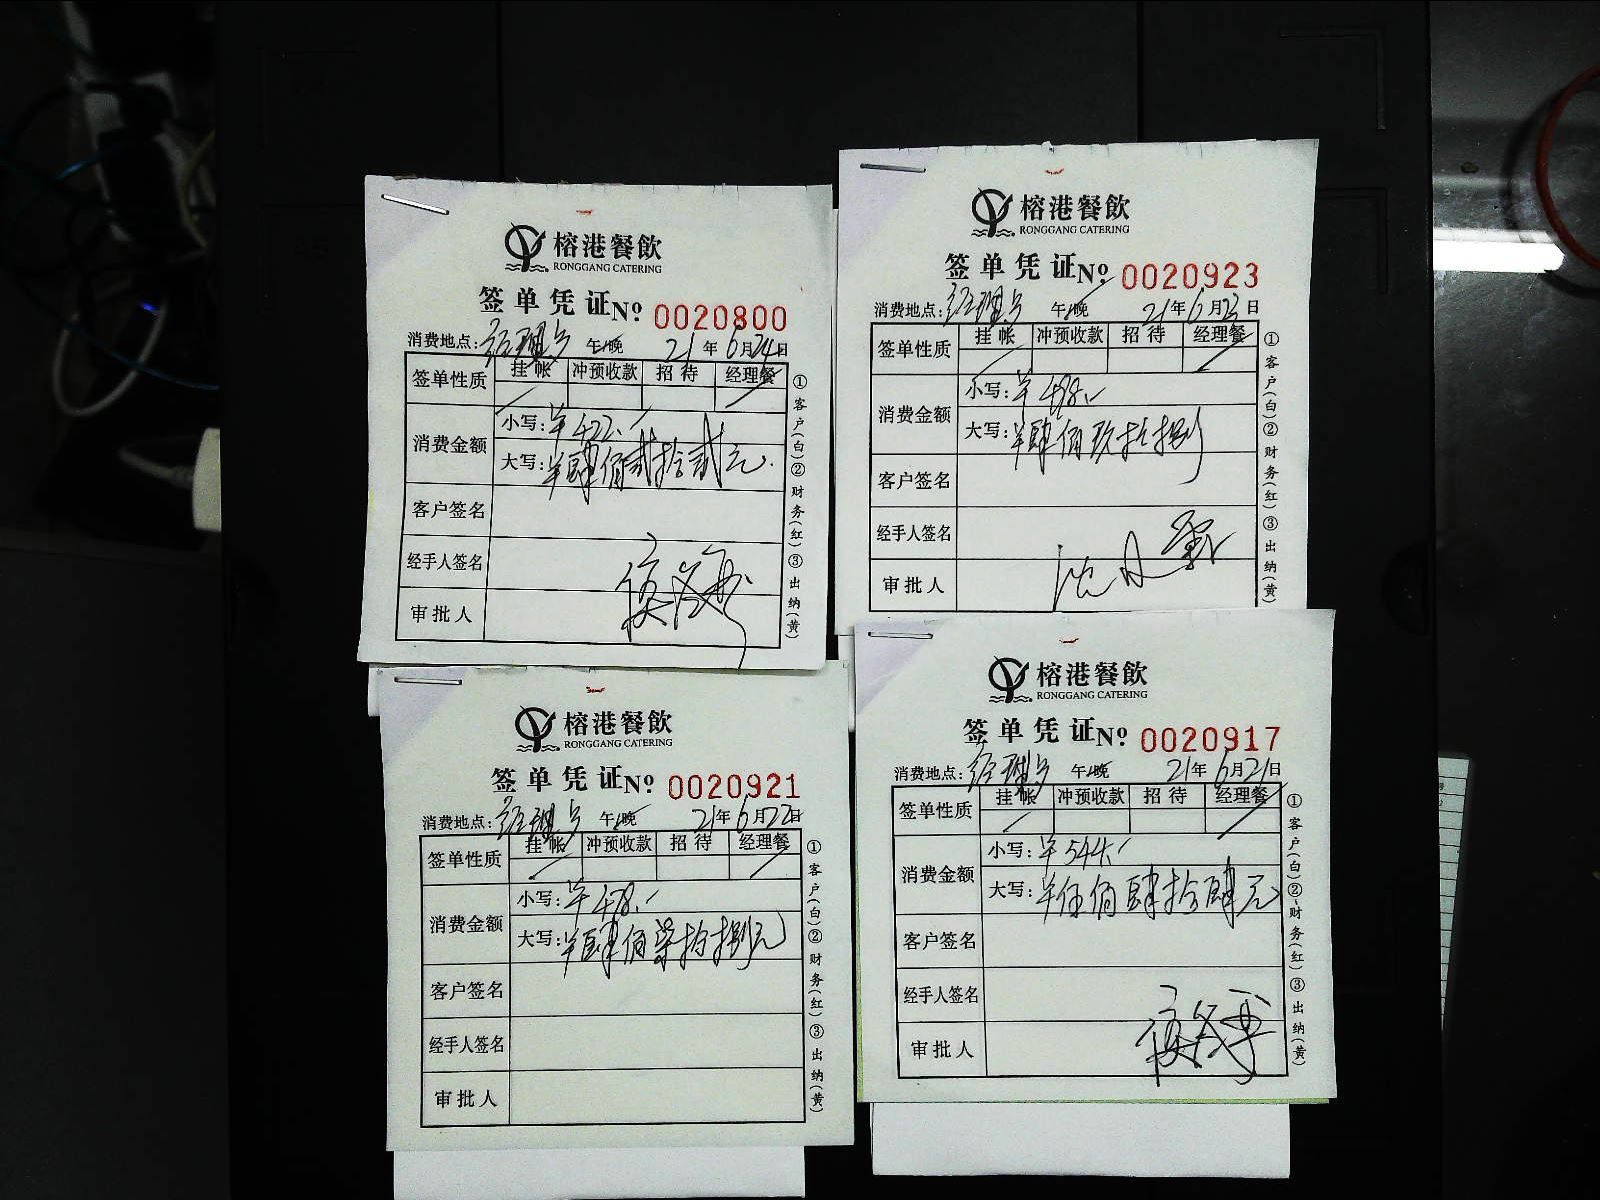 榕港餐飲
RONGGANG CATERING
签单凭证 No 0020800
消费地点: 午晚 21年6月24日
签单性质 挂帐 冲预收款 招待 经理餐
消费金额 小写: ¥422.
大写: ¥肆佰贰拾贰元.
客户签名
经手人签名
审批人
①客户(白)②财务(红)③出纳(黄)
榕港餐飲
RONGGANG CATERING
签单凭证 No 0020923
消费地点: 午晚 21年6月23日
签单性质 挂帐 冲预收款 招待 经理餐
消费金额 小写: ¥498.
大写: ¥肆佰玖拾捌
客户签名
经手人签名
审批人
①客户(白)②财务(红)③出纳(黄)
榕港餐飲
RONGGANG CATERING
签单凭证 No 0020921
消费地点: 午晚 21年6月22日
签单性质 挂帐 冲预收款 招待 经理餐
消费金额 小写: ¥478.
大写: ¥肆佰柒拾捌元
客户签名
经手人签名
审批人
①客户(白)②财务(红)③出纳(黄)
榕港餐飲
RONGGANG CATERING
签单凭证 No 0020917
消费地点: 午晚 21年6月21日
签单性质 挂帐 冲预收款 招待 经理餐
消费金额 小写: ¥544.
大写: ¥伍佰肆拾肆元
客户签名
经手人签名
审批人
①客户(白)②财务(红)③出纳(黄)